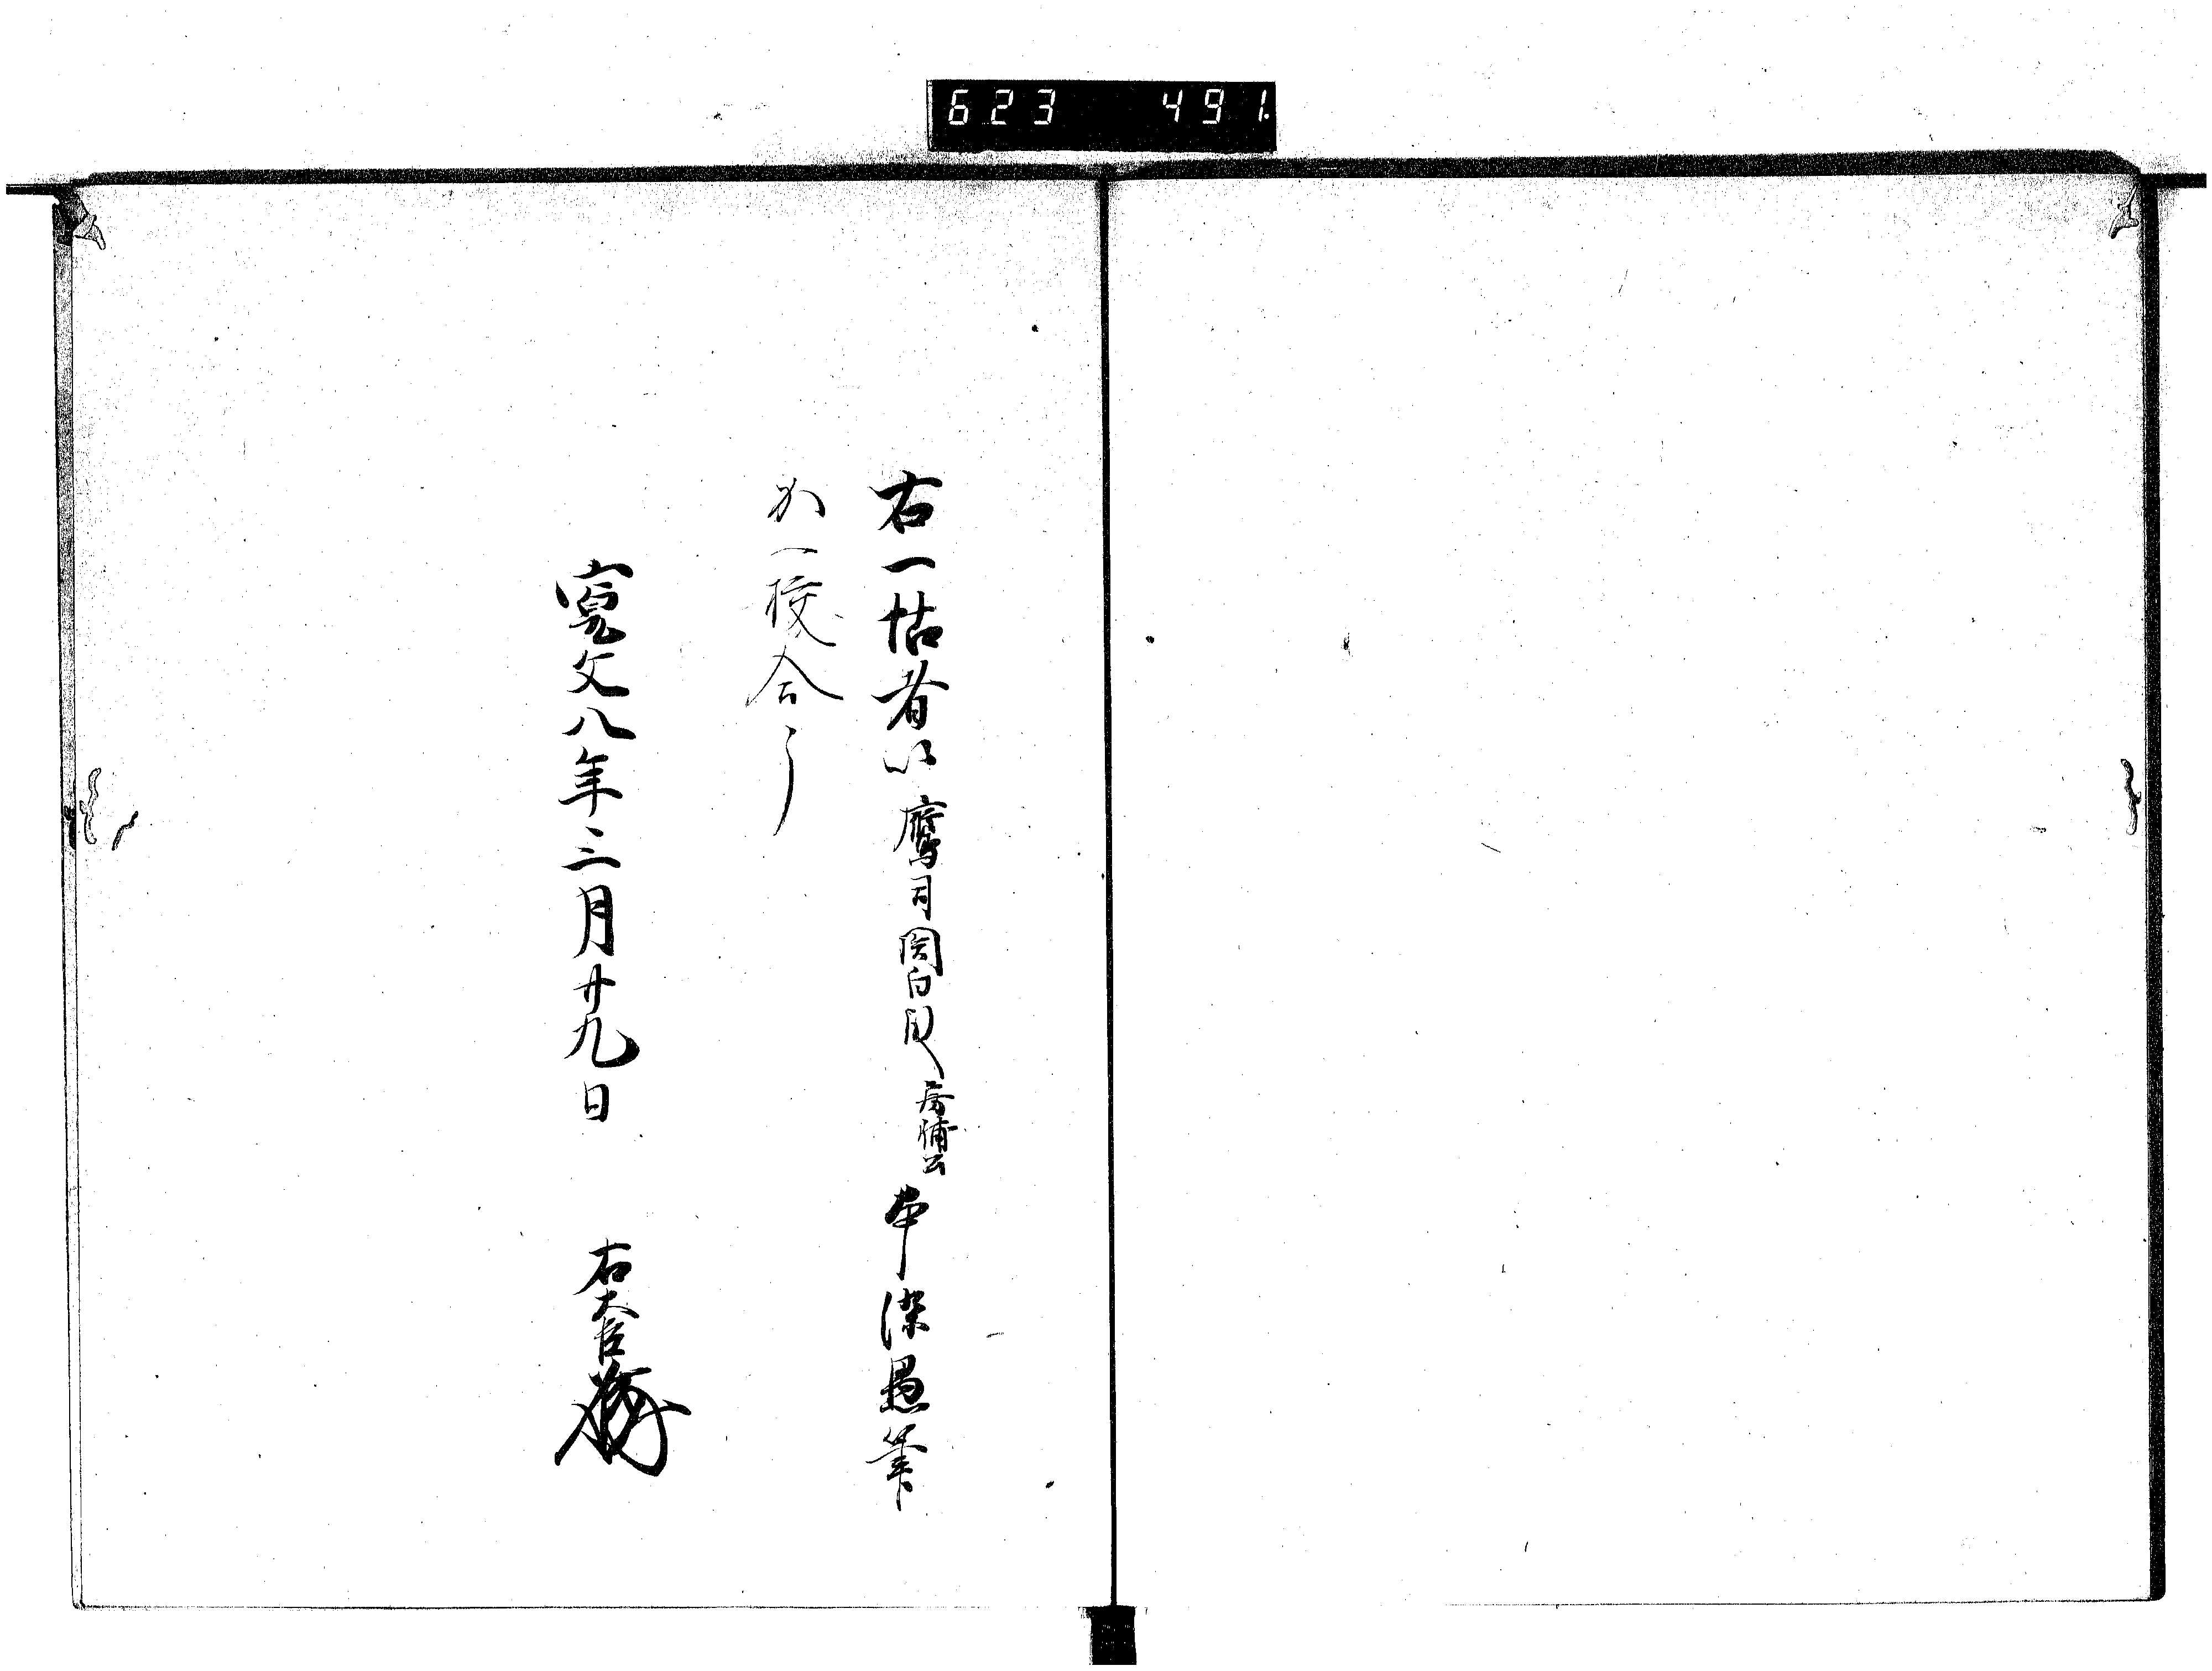 623 491
右一帖者以鷹司関白殿房輔公本染愚筆
加一校合了
寛文八年三月廿九日 右大臣